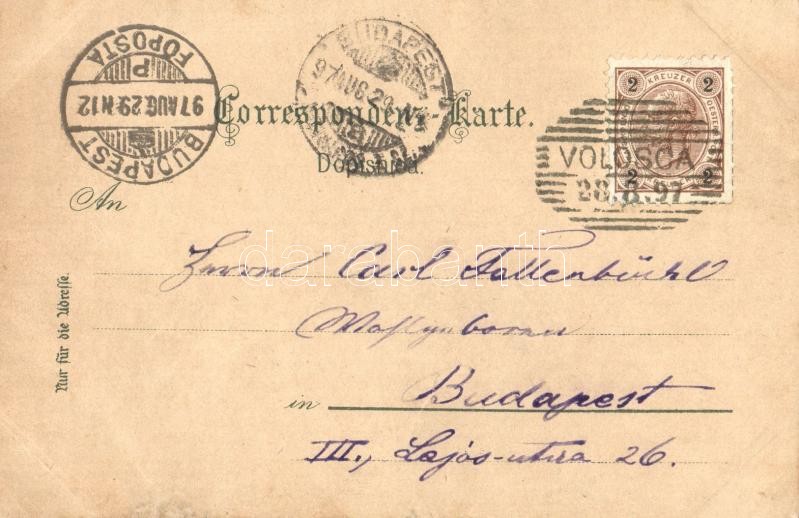 BUDAPEST
FŐPOSTA
P
97 AUG. 29. N 12
BUDAPEST
97 AUG. 29
B
2 KREUZER 2
2 2
VOLOSCA
28.8.97
Correspondenz-Karte.
Dopisnica.
An
Herrn Carl Fallenbüchl
in Budapest
III., Lajos-utca 26.
Nur für die Adresse.
darabanth